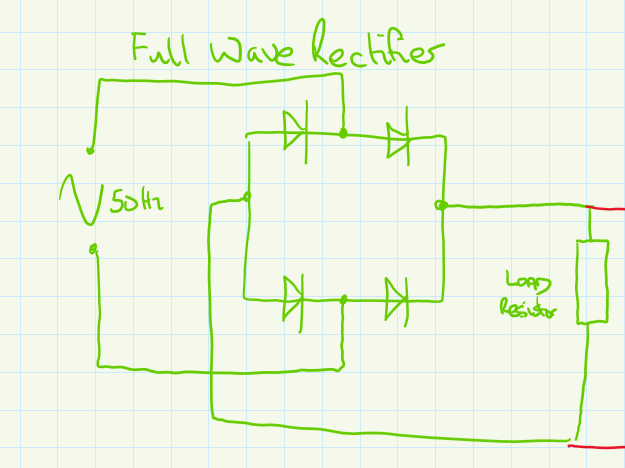 Full Wave Rectifier
50Hz
LOAD
Resistor